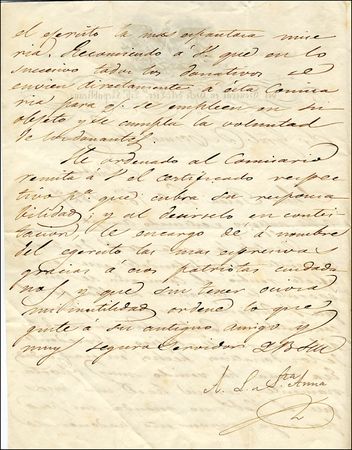 el ejercito la mas espantosa mise
ria. Recomiendo á V que en lo
sucesivo todos los donativos se
envien directamente á esta Comisa
ria para q. se empleen en su
objeto y se cumpla la voluntad
de los donantes.
He ordenado al Comisario
remita á V el certificado respec
tivo pa. que cubra su responsa
bilidad; y al decirselo en contes
tacion, le encargo dé á nombre
del ejercito las mas espresivas
gracias á esos patriotas ciudada
nos, y que sin tener ociosa
mi inutilidad ordene lo que
guste a su antiguo amigo y
muy seguro servidor Q B S M
A. L. de Sta. Anna